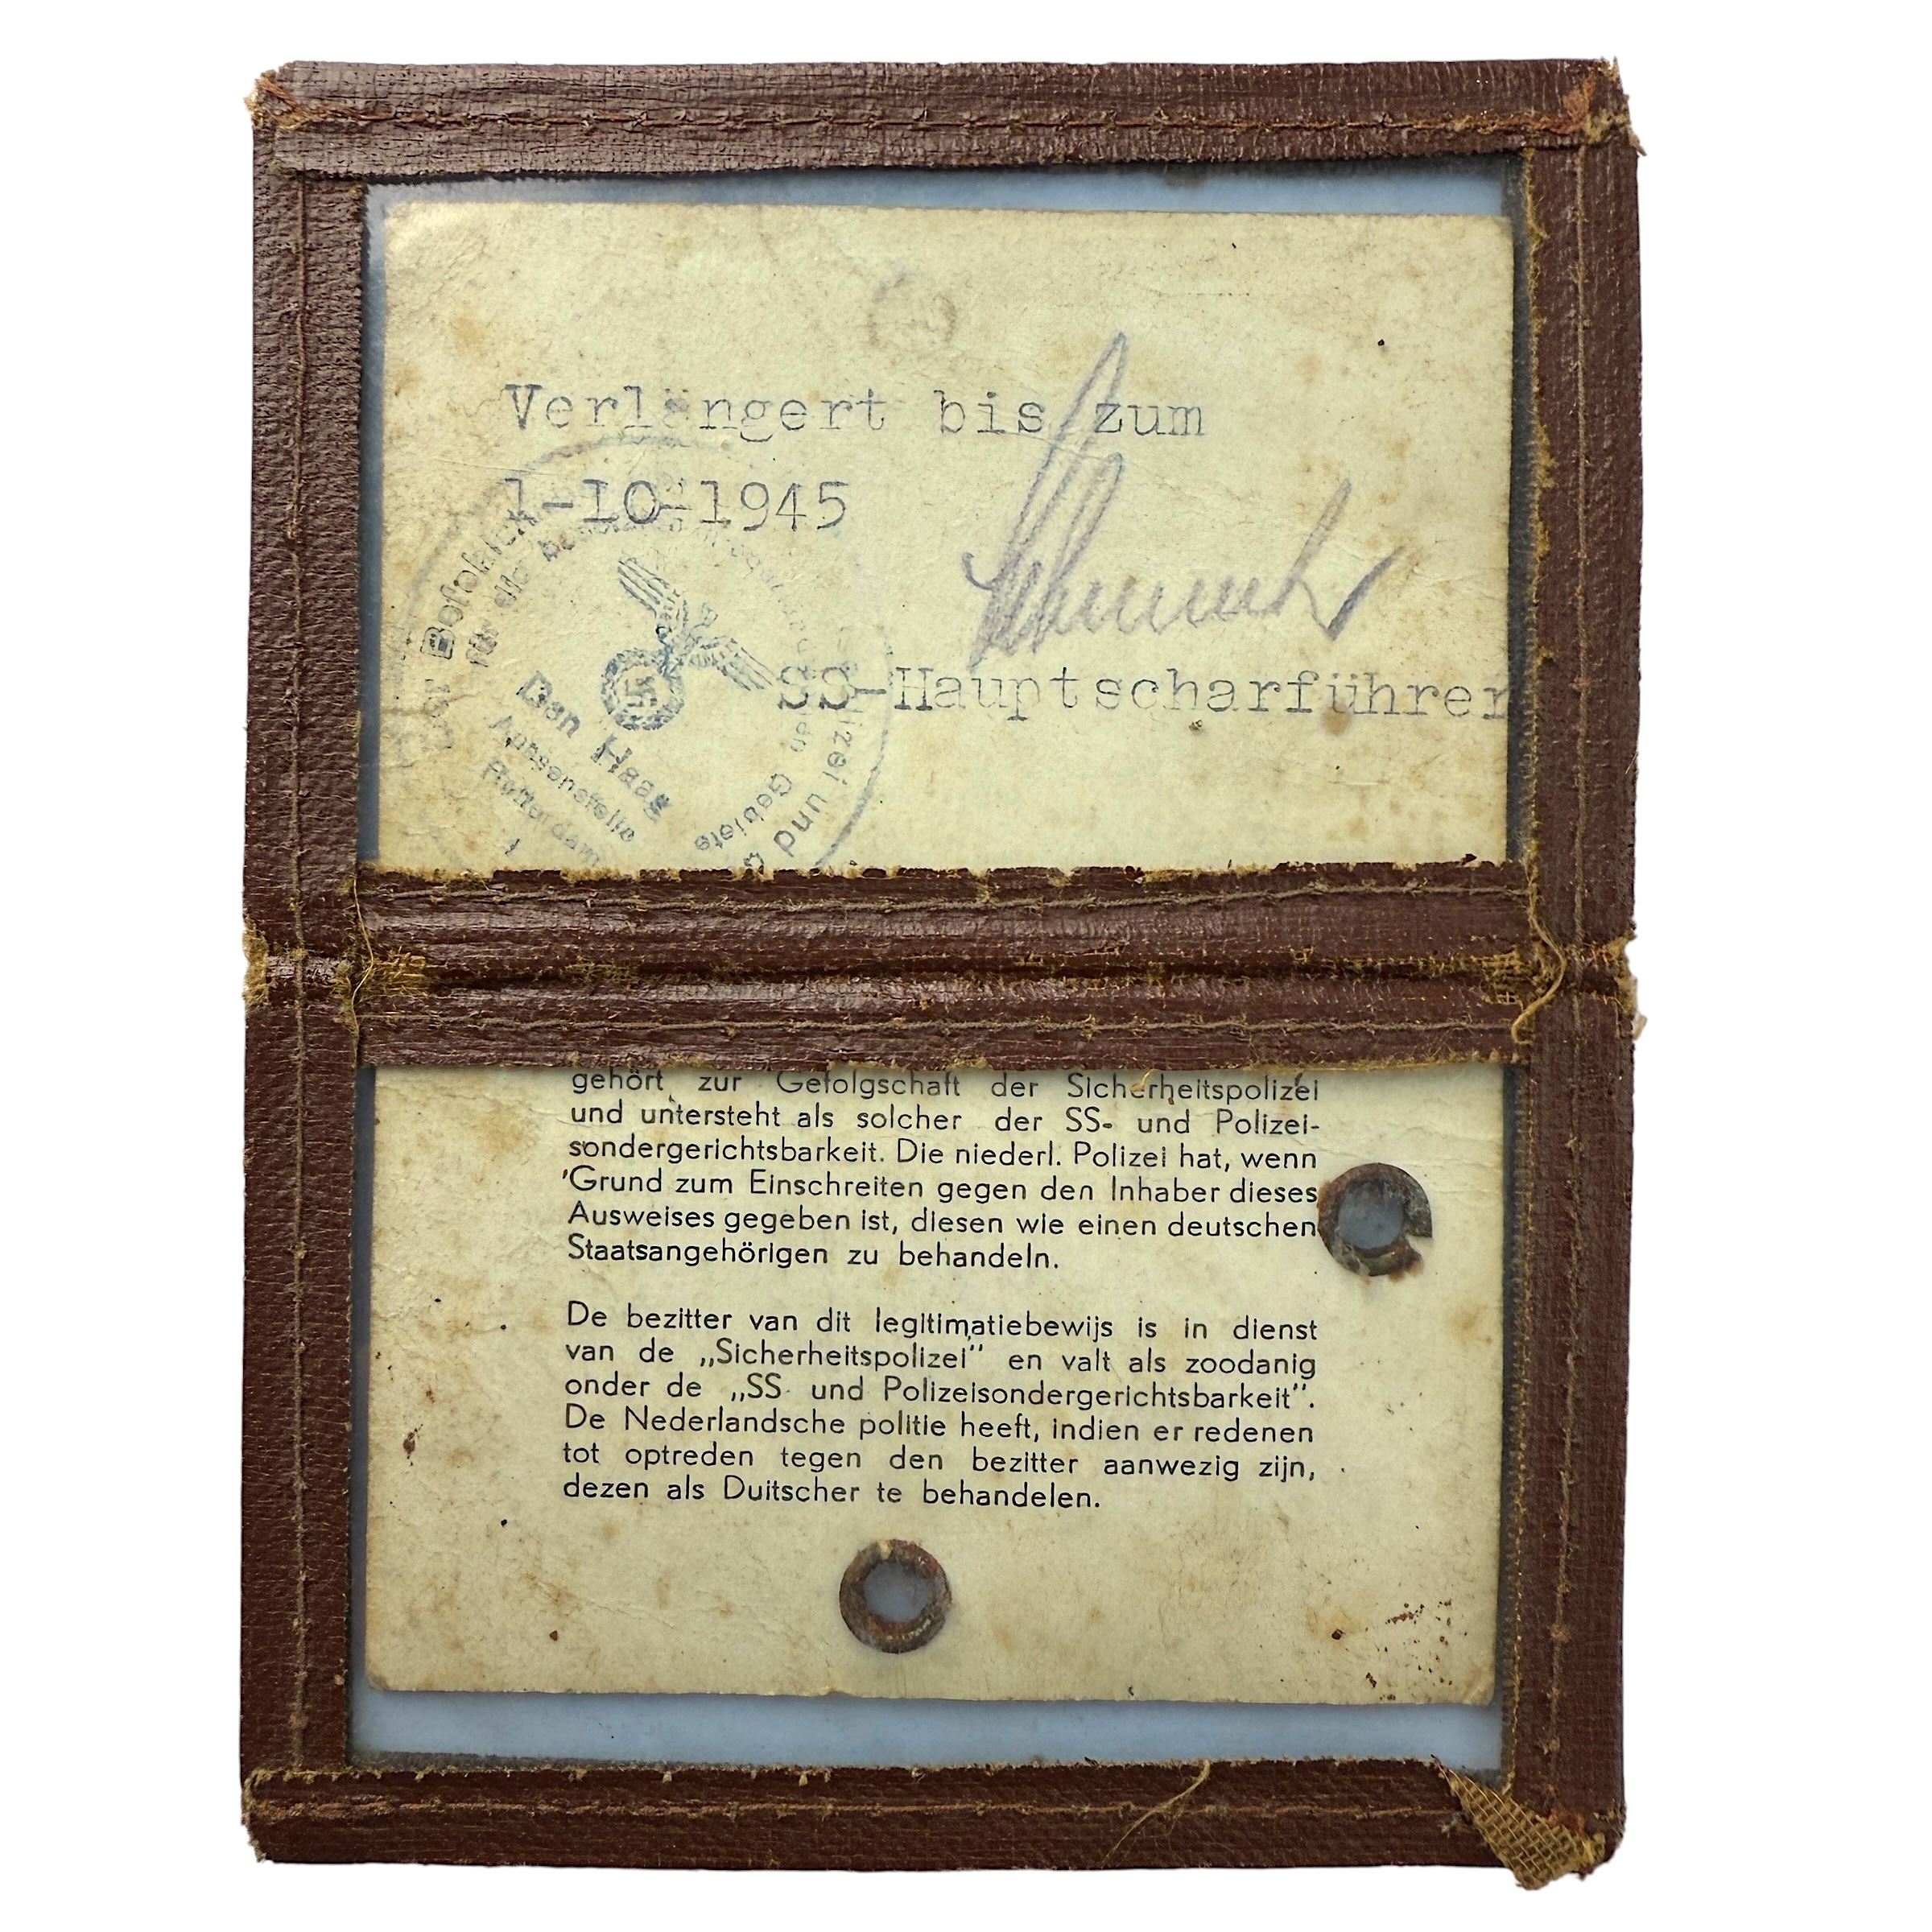 Verlängert bis zum
1-10-1945
SS-Hauptscharführer
Der Befehlsh
für die
Gebiete
izei und
Den Haag
Aussenstelle
Rotterdam
gehört zur Gefolgschaft der Sicherheitspolizei
und untersteht als solcher der SS- und Polizei-
sondergerichtsbarkeit. Die niederl. Polizei hat, wenn
Grund zum Einschreiten gegen den Inhaber dieses
Ausweises gegeben ist, diesen wie einen deutschen
Staatsangehörigen zu behandeln.
De bezitter van dit legitimatiebewijs is in dienst
van de „Sicherheitspolizei" en valt als zoodanig
onder de „SS- und Polizeisondergerichtsbarkeit".
De Nederlandsche politie heeft, indien er redenen
tot optreden tegen den bezitter aanwezig zijn,
dezen als Duitscher te behandelen.